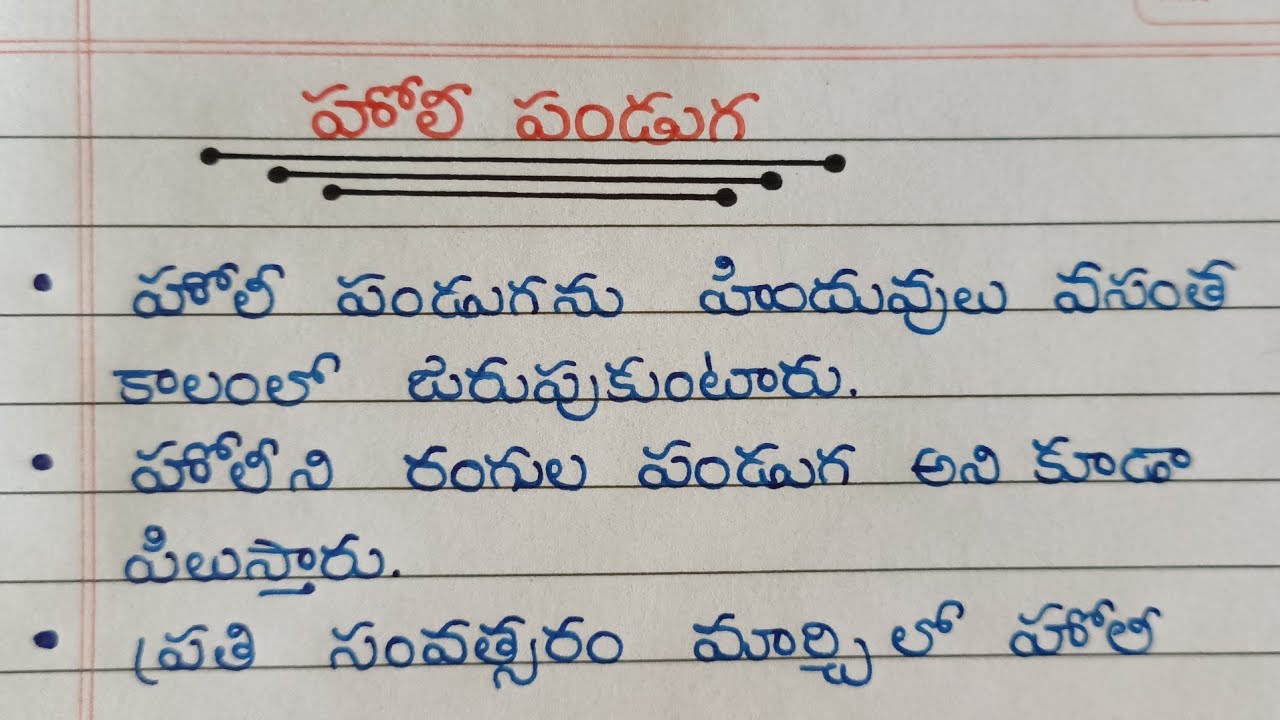 హోలీ పండుగ
• హోలీ పండుగను హిందువులు వసంత
కాలంలో జరుపుకుంటారు.
• హోలీని రంగుల పండుగ అని కూడా
పిలుస్తారు.
• ప్రతి సంవత్సరం మార్చిలో హోలీ